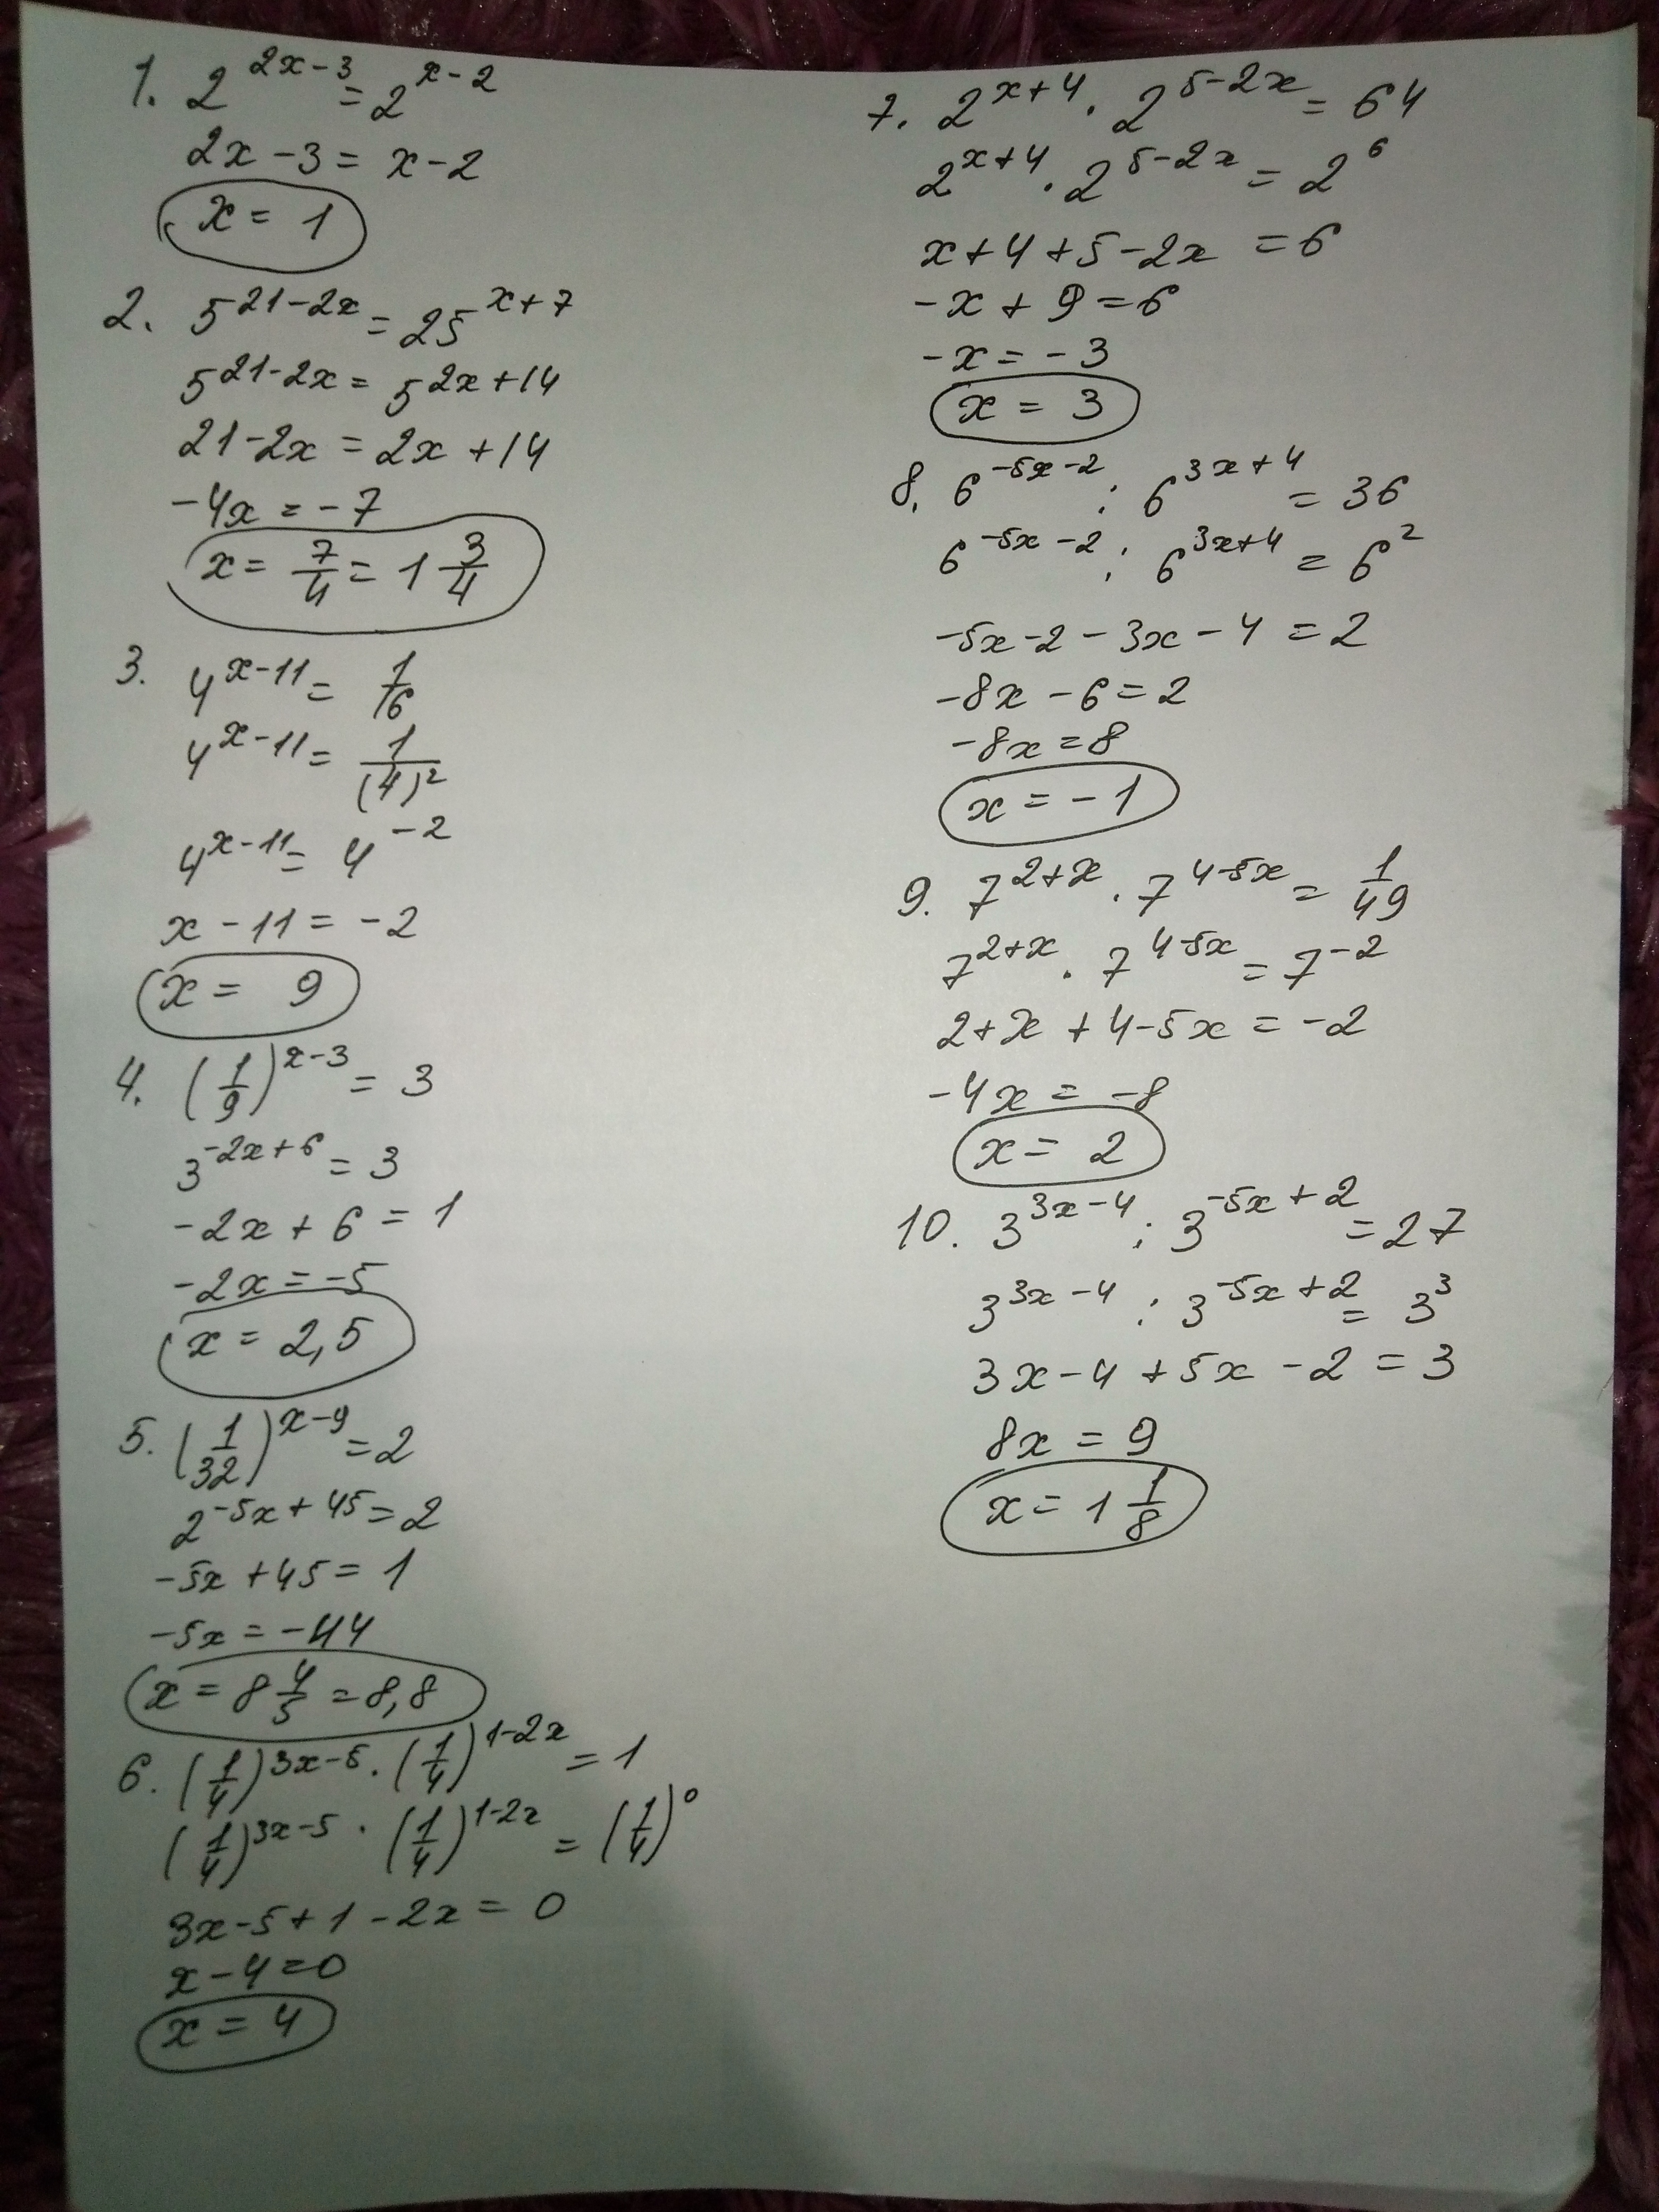 1. 2^{2x-3} = 2^{x-2}
2x-3 = x-2
x = 1
2. 5^{21-2x} = 25^{x+7}
5^{21-2x} = 5^{2x+14}
21-2x = 2x+14
-4x = -7
x = 7/4 = 1 3/4
3. 4^{x-11} = 1/16
4^{x-11} = 1/(4)^2
4^{x-11} = 4^{-2}
x-11 = -2
x = 9
4. (1/9)^{x-3} = 3
3^{-2x+6} = 3
-2x+6 = 1
-2x = -5
x = 2,5
5. (1/32)^{x-9} = 2
2^{-5x+45} = 2
-5x+45 = 1
-5x = -44
x = 8 4/5 = 8,8
6. (1/4)^{3x-5} · (1/4)^{1-2x} = 1
(1/4)^{3x-5} · (1/4)^{1-2x} = (1/4)^0
3x-5+1-2x = 0
x-4=0
x = 4
7. 2^{x+4} · 2^{5-2x} = 64
2^{x+4} · 2^{5-2x} = 2^6
x+4+5-2x = 6
-x+9=6
-x = -3
x = 3
8. 6^{-5x-2} : 6^{3x+4} = 36
6^{-5x-2} : 6^{3x+4} = 6^2
-5x-2-3x-4 = 2
-8x-6=2
-8x=8
x = -1
9. 7^{2+x} · 7^{4-5x} = 1/49
7^{2+x} · 7^{4-5x} = 7^{-2}
2+x+4-5x = -2
-4x = -8
x = 2
10. 3^{3x-4} : 3^{-5x+2} = 27
3^{3x-4} : 3^{-5x+2} = 3^3
3x-4+5x-2 = 3
8x = 9
x = 1 1/8